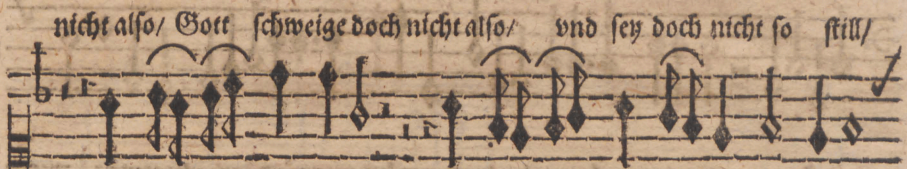 nicht also/ Gott schweige doch nicht also/ vnd sey doch nicht so still/